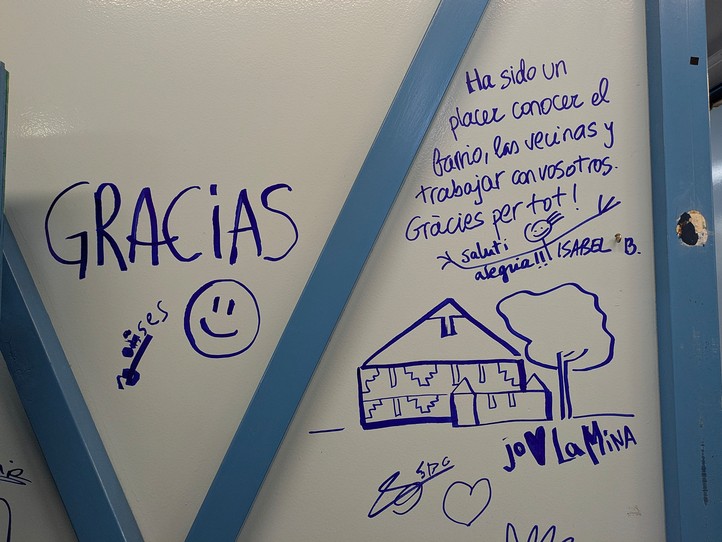 GRACiAS
Ha sido un
placer conocer el
barrio, las vecinas y
trabajar con vosotros.
Gràcies per tot!
salut i
alegria!!! ISABEL B.
jo♥ La MiNA